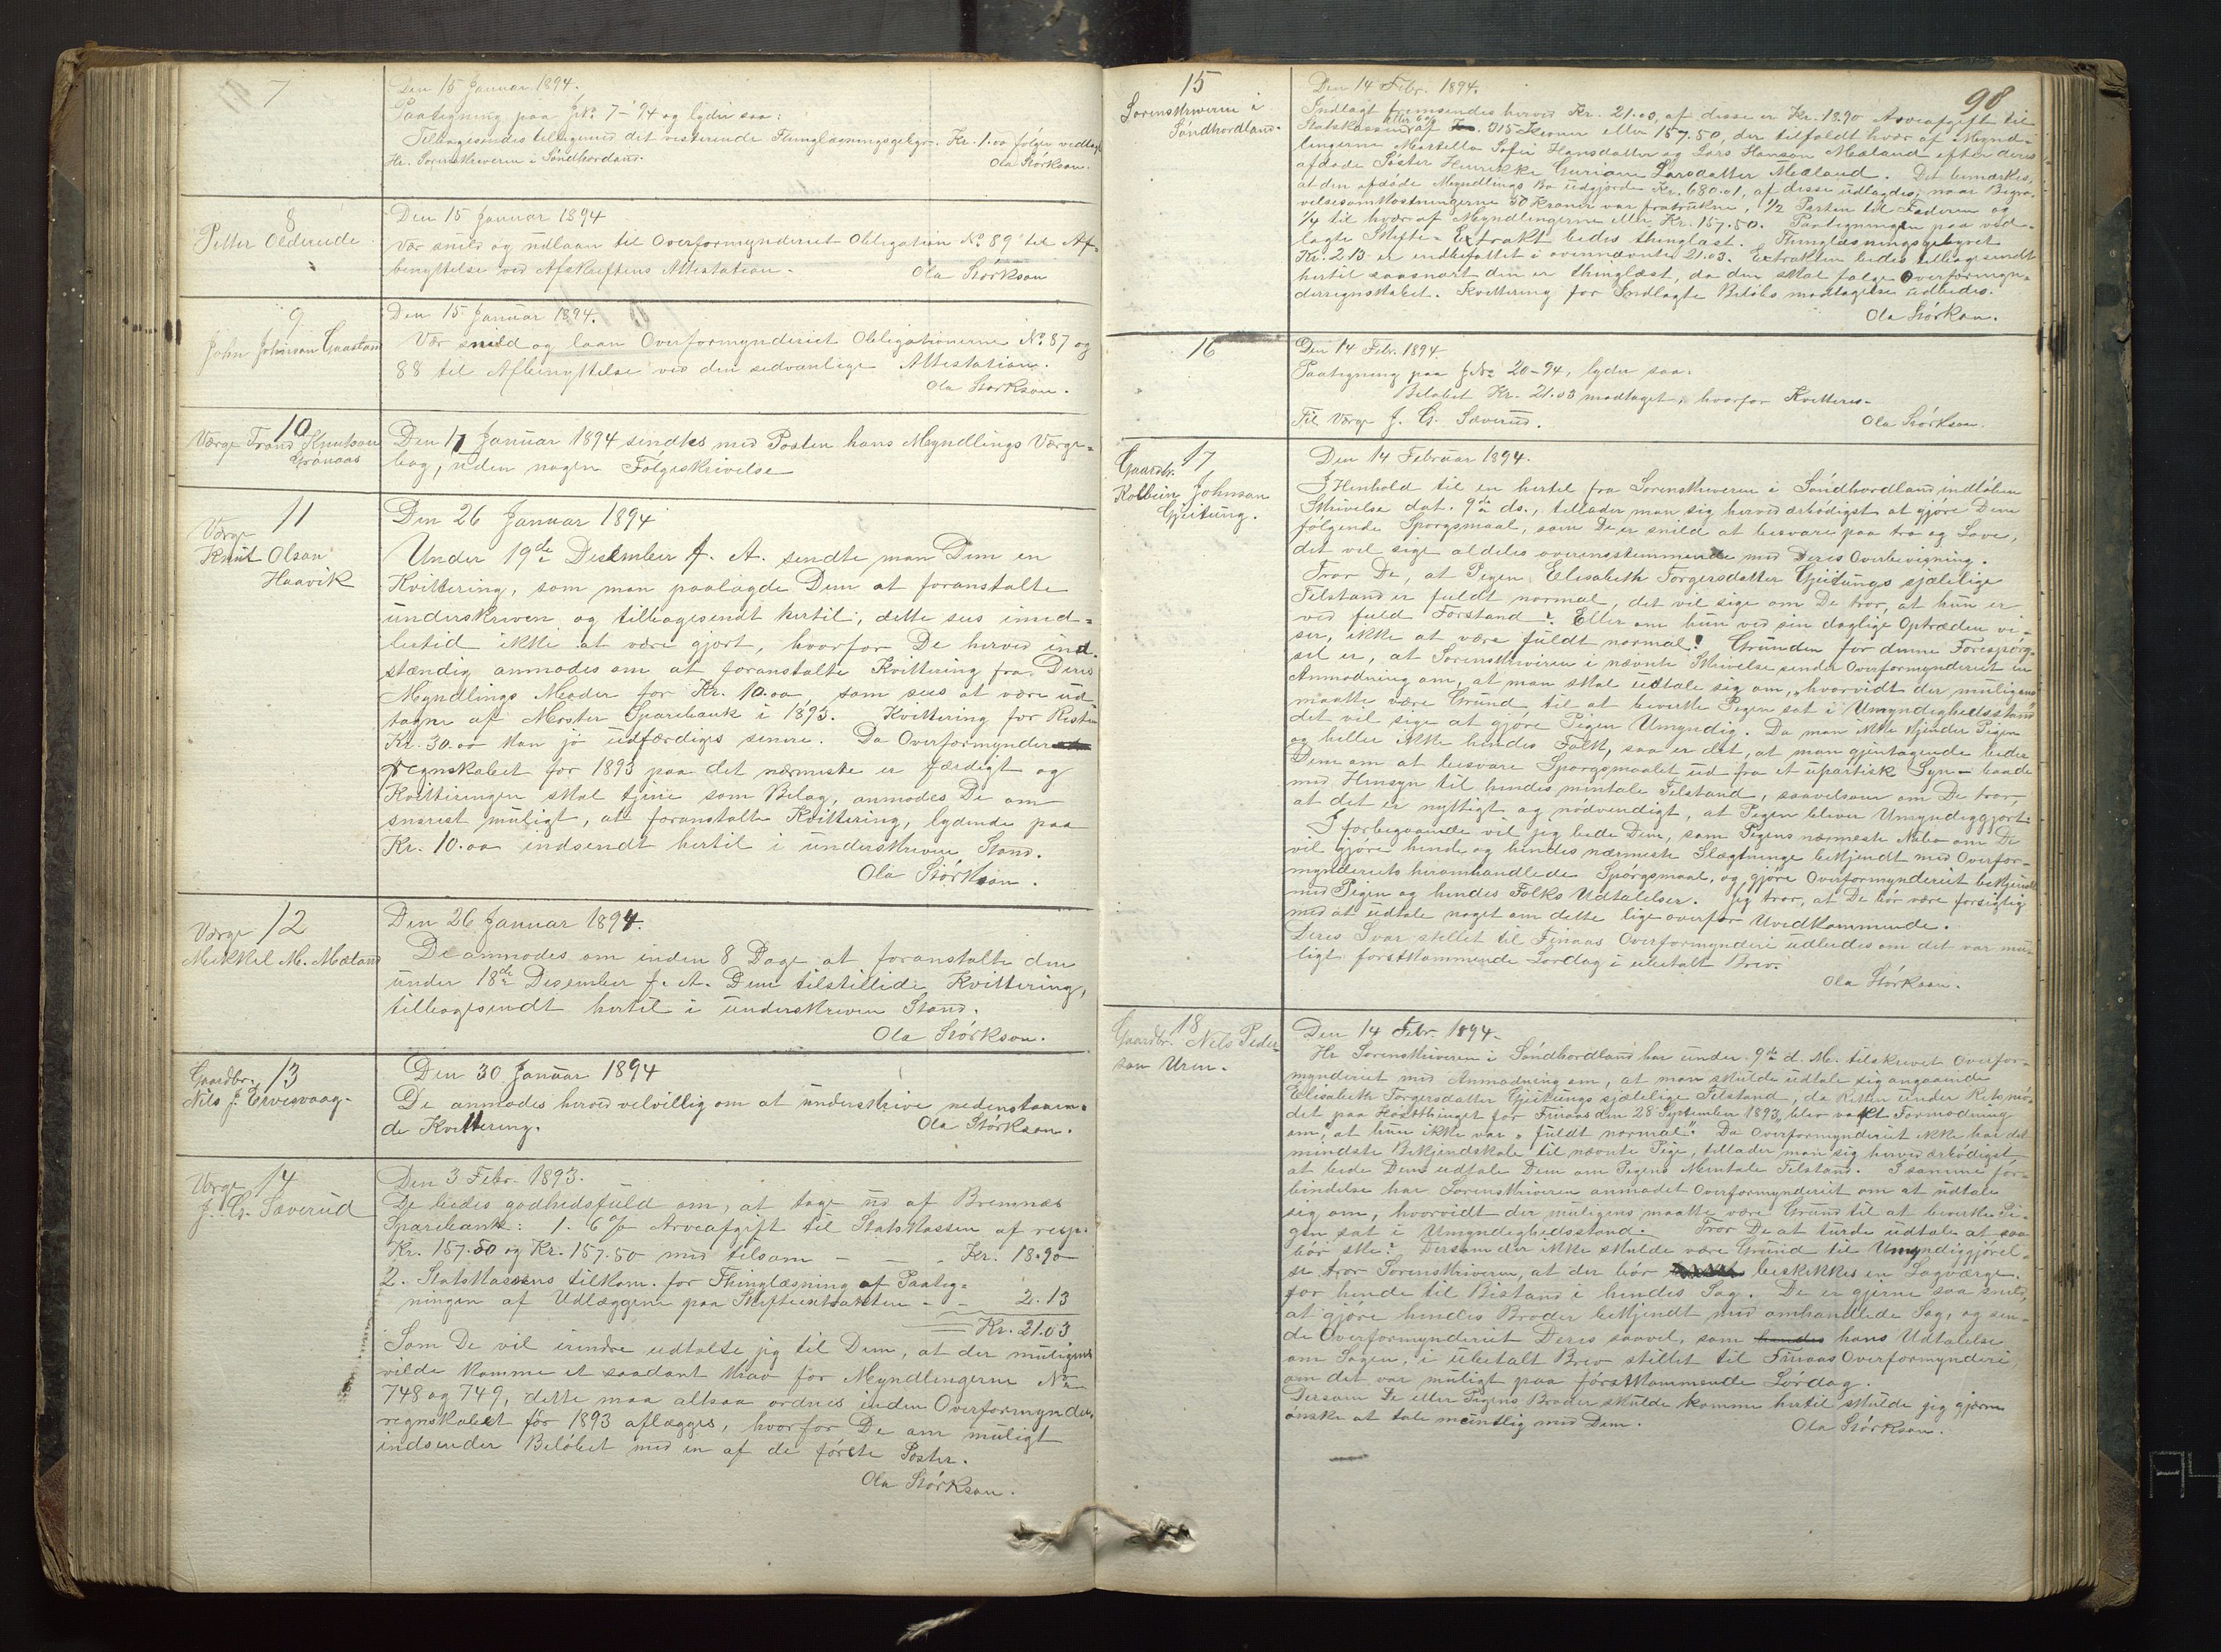 7
Den 15 Januar 1894.
Paategning paa J.No. 7-'94 og lyder saa:
Tilbagesendes tilligemed det resterende Thinglæsningsgebyr. Kr. 1.00 følger vedlagt
Hr. Sorenskriveren i Söndhordland.
Ola Störkson.
8
Petter Oldereide
Den 15 Januar 1894
Vær snild og udlaan til Overformynderiet Obligation No. 89 til Af-
benyttelse ved Afskriftens Attestation.
Ola Störkson
9
John Johnson Gaastad
Den 15 Januar 1894.
Vær snild og laan Overformynderiet Obligationerne No. 87 og
88 til Afbenyttelse ved den sedvanlige Attestation.
Ola Störkson.
10
Værge Trond Knutson
Grönaas
Den 17 Januar 1894 sendtes med Posten hans Myndlings Værge-
bog, uden nogen Fölgeskrivelse
11
Værge
Knut Olson
Haavik
Den 26 Januar 1894
Under 19de Desember f. A. sendte man Dem en
Kvittering, som man paalagde Dem at foranstalte
underskreven og tilbagesendt hertil; dette sees imid-
lertid ikke at være gjort, hvorfor De herved ind-
stændig anmodes om at foranstalte Kvittering fra Deres
Myndlings Moder for Kr. 10.00 som sees at være ud
tagne af Moster Sparebank i 1893. Kvittering for Resten
Kr. 30.00 kan jo udfærdiges senere. Da Overformynder
regnskabet for 1893 paa det nærmeste er færdigt og
Kvitteringen skal tjene som Bilag, anmodes De om
snarest muligt, at foranstalte Kvittering, lydende paa
Kr. 10.00 indsendt hertil i underskreven Stand.
Ola Störkson.
12
Værge
Mikkel M. Mæland
Den 26 Januar 1894.
De anmodes om inden 8 Dage at foranstalte den
under 18de Desember f. A. Dem tilstillede Kvittering,
tilbagesendt hertil i underskreven Stand.
Ola Störkson.
13
Gaardbr.
Nils J. Ervesvaag.
Den 30 Januar 1894
De anmodes herved velvillig om at underskrive nedenstaaen-
de Kvittering.
Ola Störkson.
14
Værge
J. G. Sæverud
Den 3 Febr. 1893.
De bedes godhedsfuld om, at tage ud af Bremnes
Sparebank: 1. 6% Arveafgift til Statskassen af resp.
Kr. 157.50 og Kr. 157.50 med tilsam - - - Kr. 18.90
2. Statskassens tilkom. for Thinglæsning af Paateg-
ningen af Udlæggene paa Skifteextrakten - - 2.13
Kr. 21.03
Som De vil erindre udtalte jeg til Dem, at der muligens
vilde komme et saadant Krav for Myndlingerne No.
748 og 749, dette maa altsaa ordnes inden Overformynder-
regnskabet for 1893 aflægges, hvorfor De om muligt
indsender Belöbet med en af de förste Poster.
Ola Störkson.
98
15
Sorenskriveren i
Söndhordland.
Den 14 Febr. 1894.
Indlagt fremsendes herved Kr. 21.03, af disse er Kr. 18.90 Arveafgift til
Statskassen af 315 Kroner eller 157.50, der tilfaldt hver af Mynd-
lingerne Martella Sofie Hansdatter og Lars Hanson Mæland efter deres
afdöde Söster Henrikke Guriane Larsdatter Mæland. Det bemærkes,
at den afdöde Myndlings Bo udgjorde Kr. 680.01, af disse udlagdes, naar Begra-
velsesomkostningerne 50 Kroner var fratrukne, 1/2 Parten til Faderen og
1/4 til hver af Myndlingerne eller Kr. 157.50. Paategningen paa ved-
lagte Skifte-Extrakt bedes thinglæst. Thinglæsningsgebyret
Kr. 2.13 er indbefattet i ovennævnte 21.03. Extrakten bedes tilbagesendt
hertil saasnart den er thinglæst, da den skal fölge Overformyn-
derregnskabet. Kvittering for Indlagte Belöbs modtagelse udbedes.
Ola Störkson.
16
Den 14 Febr. 1894.
Paategning paa J.No. 20-94, lyder saa:
Belöbet Kr. 21.03 modtaget, hvorfor Kvitteres.
Til Værge J. G. Sæverud.
Ola Störkson
17
Gaardbr.
Kolbein Johnson
Gjeitung.
Den 14 Februar 1894.
I Henhold til en hertil fra Sorenskriveren i Söndhordland indlöben
Skrivelse dat. 9de ds., tillader man sig herved ærbödigst at gjöre Dem
fölgende Spörgsmaal, som De er snild at besvare paa tro og Love,
det vil sige aldeles overensstemmende med Deres Overbevisning.
Tror De, at Pigen, Elisabeth Torgersdatter Gjeitungs sjælelige
Tilstand er fuldt normal, det vil sige om De tror, at hun er
ved fuld Forstand? Eller om hun ved sin daglige Optræden vi-
ser, ikke at være fuldt normal? Grunden for denne Forespörg-
sel er, at Sorenskriveren i nævnte Skrivelse sender Overformynderiet en
Anmodning om, at man skal udtale sig om, "hvorvidt der muligens
maatte være Grund til at bevirke Pigen sat i Umyndighedsstand"
det vil sige at gjöre Pigen Umyndig. Da man ikke kjender Pigen
og heller ikke hendes Folk, saa er det, at man gjentagende beder
Dem om at besvare Spörgsmaalet ud fra et upartisk Syn - baade
med Hensyn til hendes mentale Tilstand, saavelsom om De tror,
at det er nyttigt og nödvendigt, at Pigen bliver Umyndiggjort.
I forbigaaende vil jeg bede Dem, som Pigens nærmeste Nabo om De
vil gjöre hende og hendes nærmeste Slægtninge bekjendt med Overfor-
mynderiets heromhandlede Spörgsmaal, og gjöre Overformynderiet bekjendt
med Pigen og hendes Folks Udtalelser. Jeg tror, at De bör være forsigtig
med at udtale noget om dette lige overfor Uvedkommende.
Deres Svar stillet til Finaas Overformynderi udbedes om det var mu-
ligt förstkommende Lördag i ubetalt Brev.
Ola Störkson.
18
Gaardbr. Nils Peder-
son Uren.
Den 14 Febr. 1894.
Hr Sorenskriveren i Söndhordland har under 9de d. M. tilskrevet Overfor-
mynderiet med Anmodning om, at man skulde udtale sig angaaende
Elisabeth Torgersdatter Gjeitungs sjælelige Tilstand, da Retten under Retsmö-
det paa Hösttinget for Finaas den 28 September 1893, blev vakt Formodning
om, at hun ikke var "fuldt normal". Da Overformynderiet ikke har det
mindste Bekjendskab til nævnte Pige, tillader man sig herved ærbödigst
at bede Dem udtale Dem om Pigens Mentale Tilstand. I samme for-
bindelse har Sorenskriveren anmodet Overformynderiet om at udtale
sig om, hvorvidt der muligens maatte være Grund til at bevirke Pi-
gen sat i Umyndighedsstand. Tror De at turde udtale at saa
bör ske? Dersom der ikke skulde være Grund til Umyndiggjörel-
se tror Sorenskriveren, at der bör beskikkes en Lagværge
for hende til Bistand i hendes Sag. De er gjerne saa snild,
at gjöre hendes Broder bekjendt med omhandlede Sag, og sen-
de Overformynderiet Deres saavel, som hans Udtalelse
om Sagen, i ubetalt Brev stillet til Finaas Overformynderi
om det var muligt paa förstkommende Lördag.
Dersom De eller Pigens Broder skulde komme hertil skulde jeg gjerne
önske at tale mundtlig med Dem.
Ola Störkson.